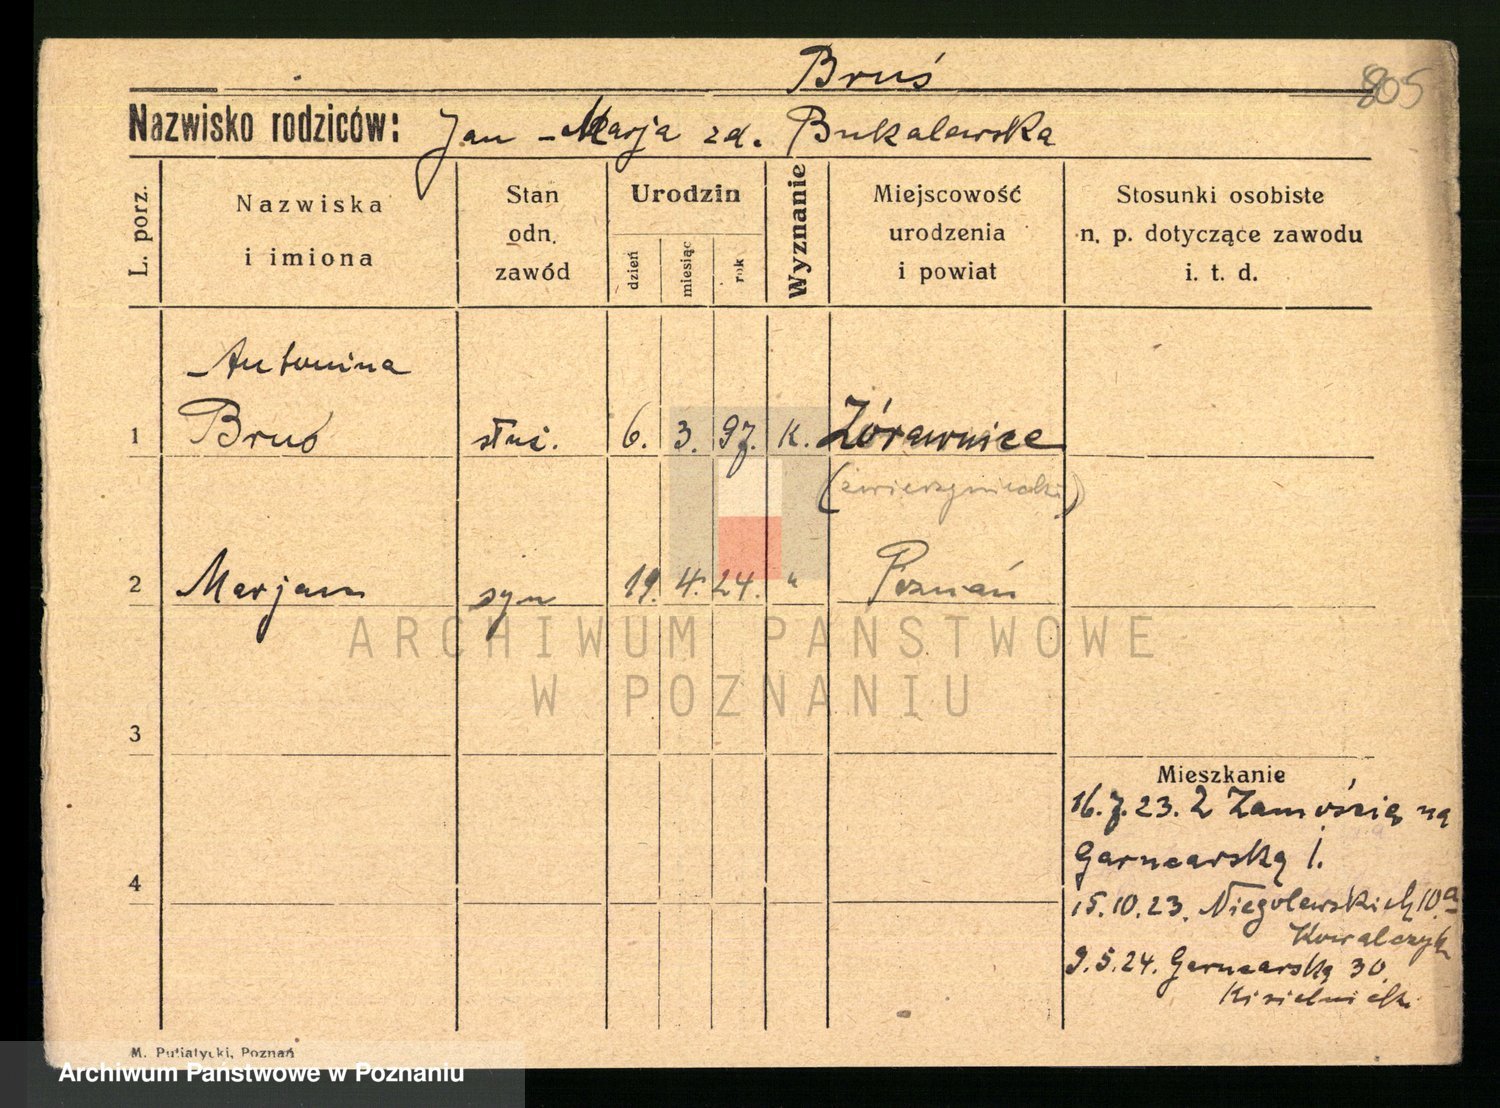 Bruś
805
Nazwisko rodziców: Jan - Marja zd. Bukalewska
L. porz.
Nazwiska i imiona
Stan odn. zawód
Urodzin
dzień
miesiąc
rok
Wyznanie
Miejscowość urodzenia i powiat
Stosunki osobiste n. p. dotyczące zawodu i. t. d.
Antonina
1 Bruś służ. 6. 3. 97. K. Żórawnice
2 Marjan syn 19. 4. 24. " Poznań
ARCHIWUM PAŃSTWOWE
W POZNANIU
3
Mieszkanie
16.7.23. Z Zamościa na
Garncarską 1.
4
15.10.23. Niegolewskich 10a
Kowalczyk
9.5.24. Garncarska 30
M. Putiatycki, Poznań
Archiwum Państwowe w Poznaniu